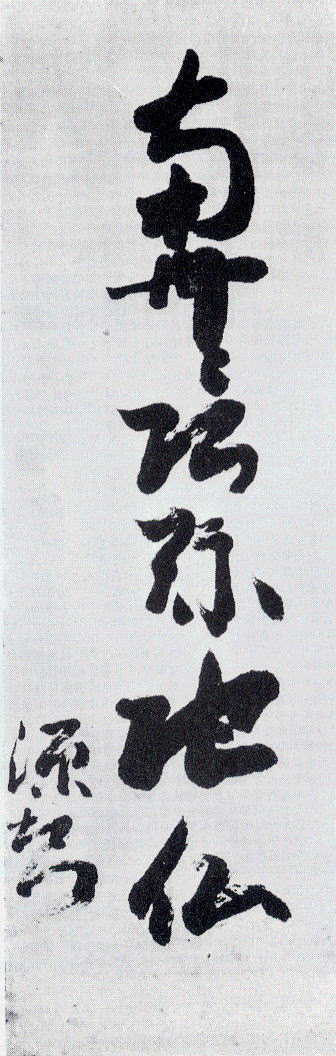 南無阿弥陀仏
源